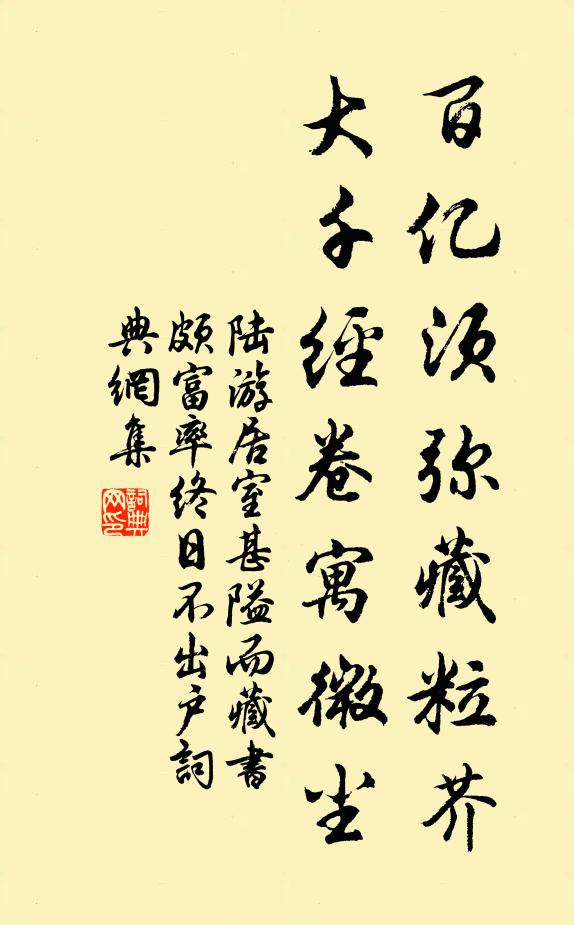 百亿须弥藏粒芥
大千經卷寓微尘
陆游居室甚隘而藏書
颇富率终日不出户詞
典網集
詞典网印